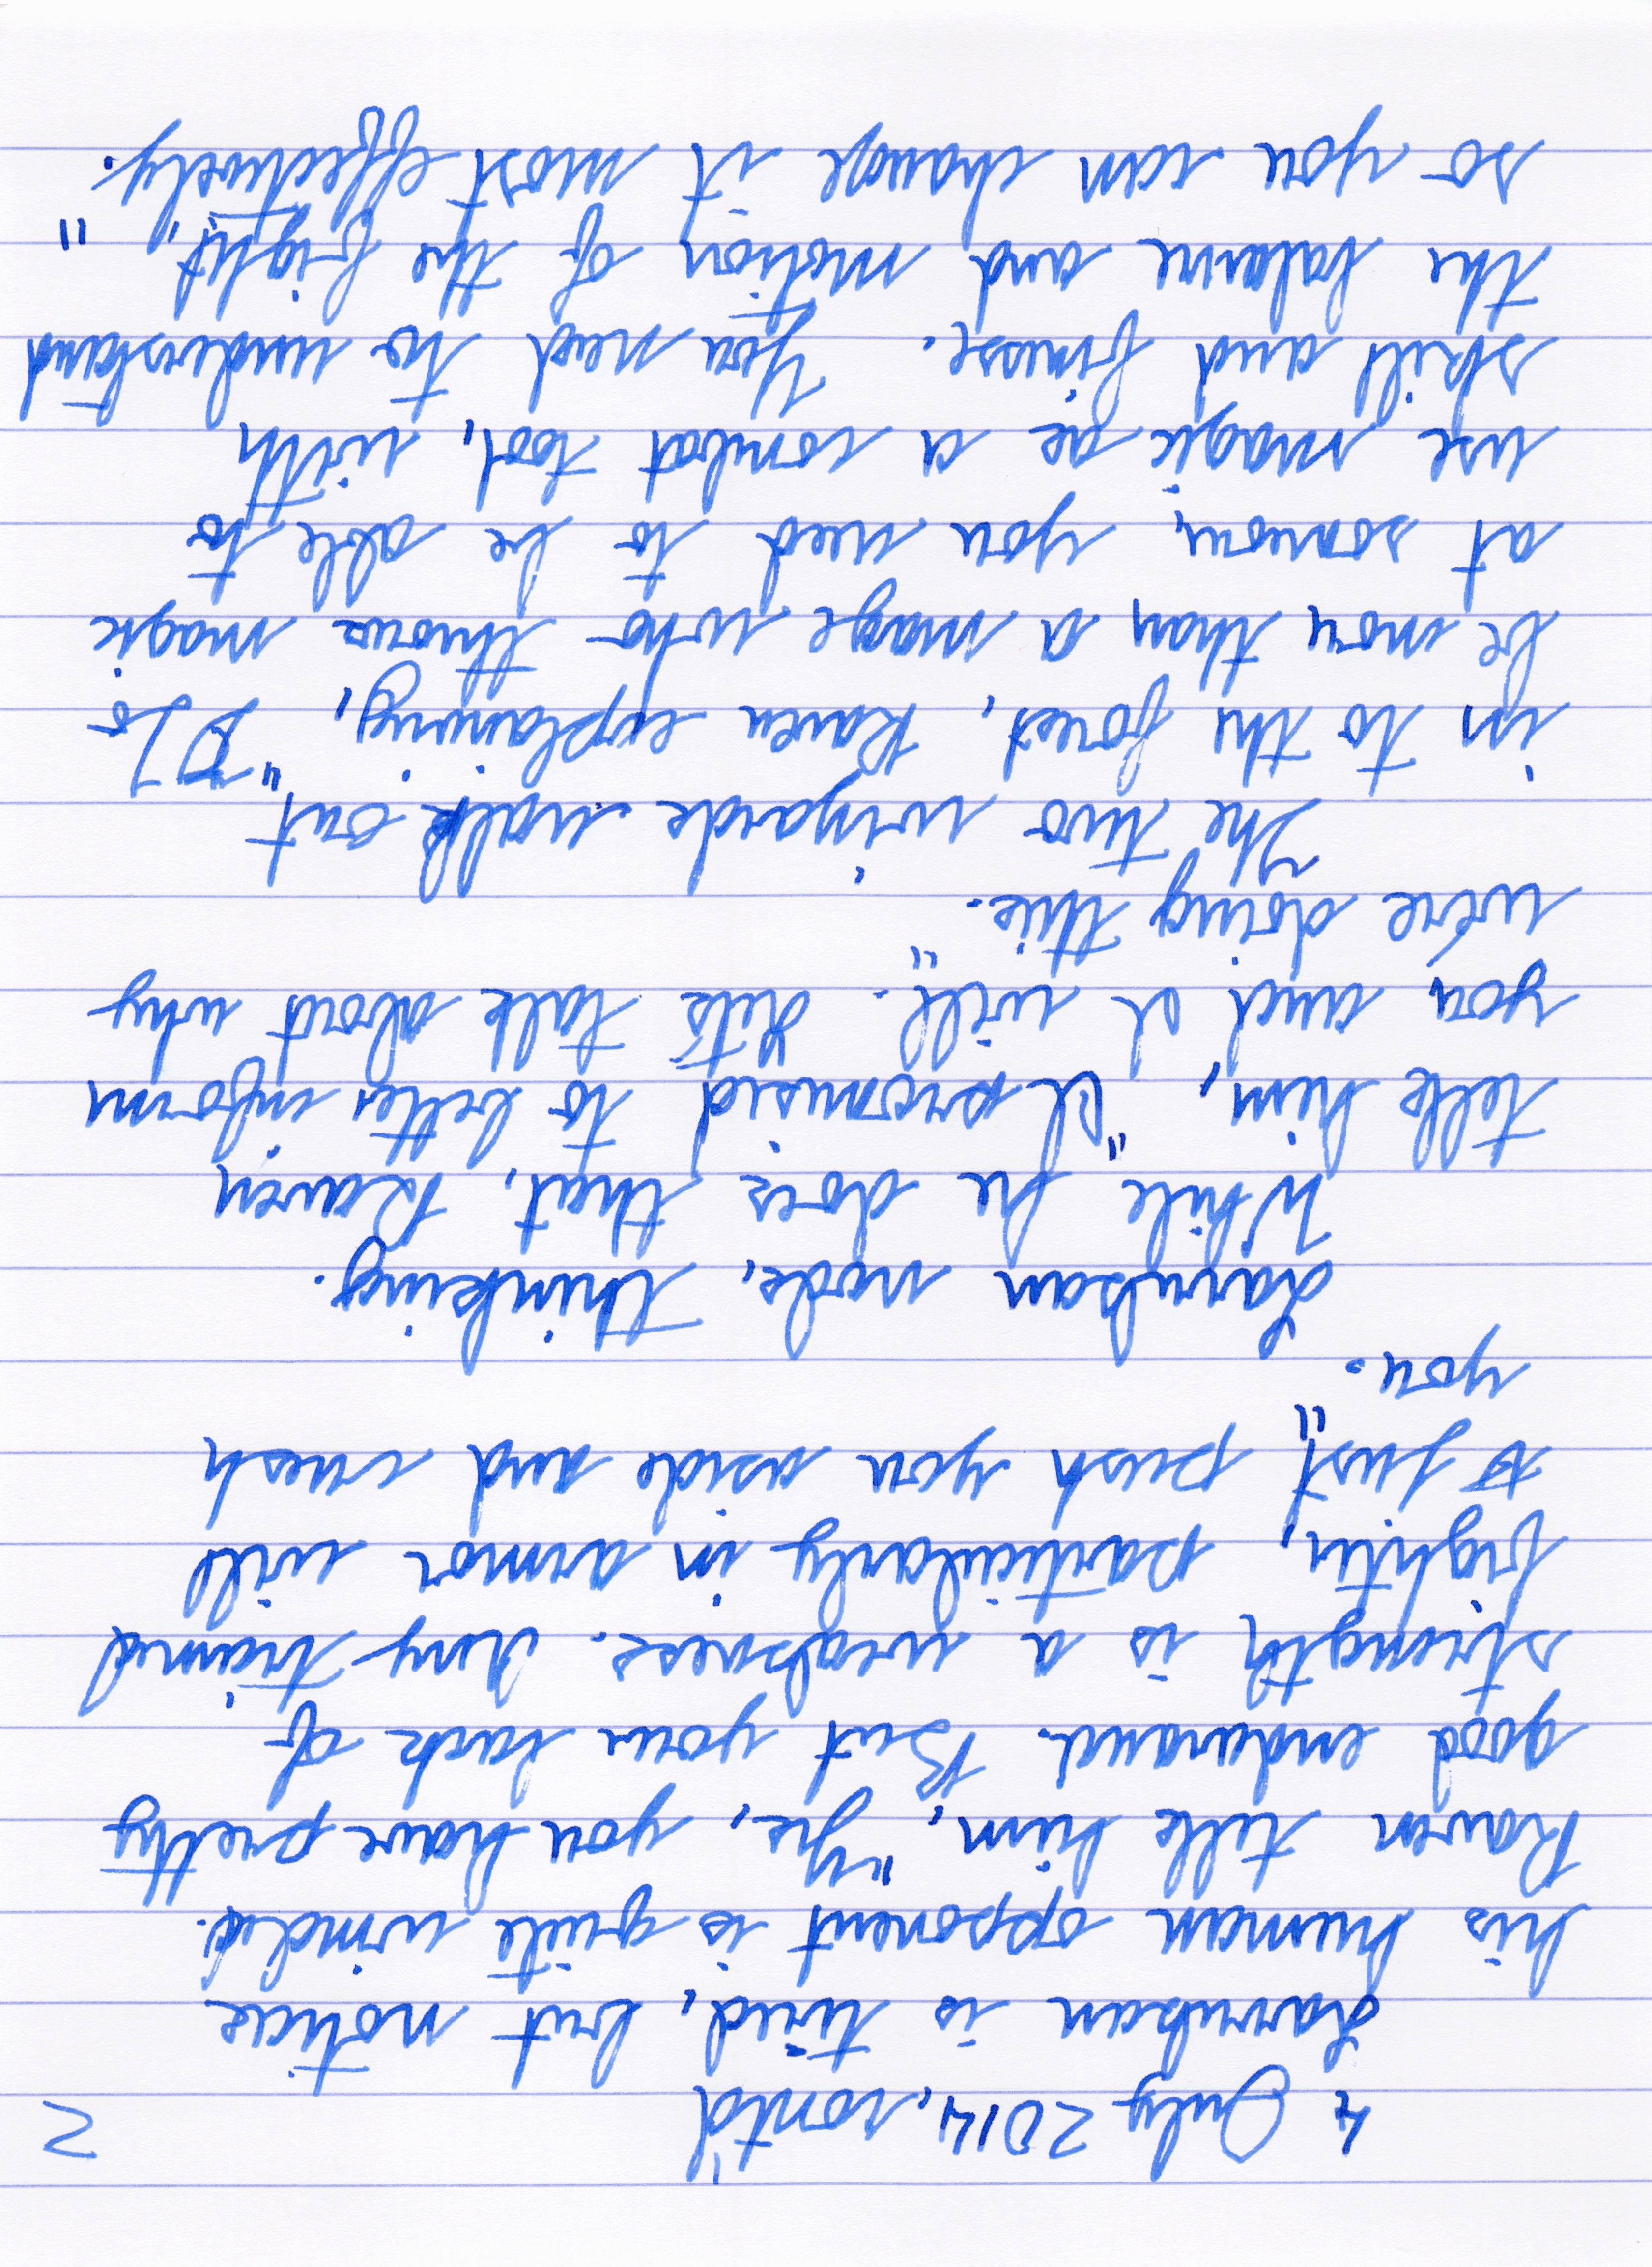 4 July 2014, cont'd
2
Laruban is tired, but notices
his human opponent is quite winded.
Raven tells him, "Yes, you have pretty
good endurance. But your lack of
strength is a weakness. Any trained
fighter, particularly in armor will
just push you aside and crush
you."
Laruban nods, thinking.
While he does that, Raven
tells him, "I promised to better inform
you, and I will. Let's talk about why
we're doing this."
The two wizards walk out
in to the forest, Raven explaining, "To
be more than a mage who throws magic
at someone, you need to be able to
use magic as a combat tool, with
skill and finesse. You need to understand
the balance and motion of the fight,
so you can change it most effectively."